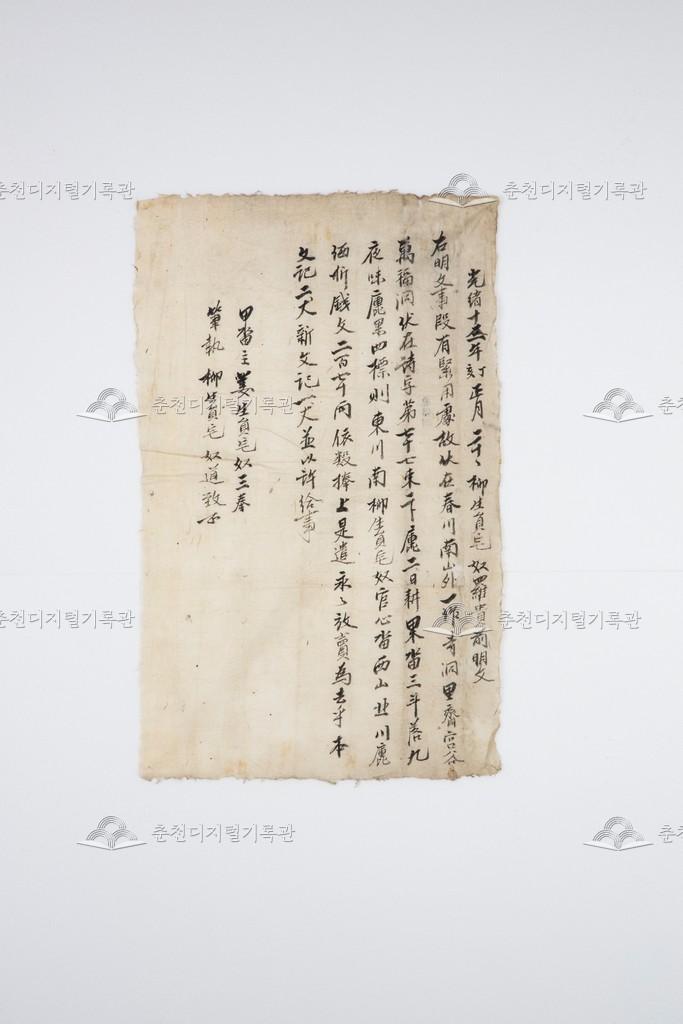 光緖十五年 己丑 正月 二十 柳生員宅 奴羅貴前明文
右明文事段有緊用處故伏在春川南山外一作青洞里齊宮谷
萬福洞伏在詩字第 七 二日耕 畓三斗落九
夜味 四標則東川南柳生員宅奴官心畓西山北川
価折錢文二百 十兩依數捧上是遣永〻放賣爲去乎本
文記二丈新文記一丈並以許給事
田畓主 生員宅奴三春
筆執 柳生員宅 奴道致
춘천디지털기록관
춘천디지털기록관
춘천디지털기록관
춘천디지털기록관
춘천디지털기록관
춘천디지털기록관